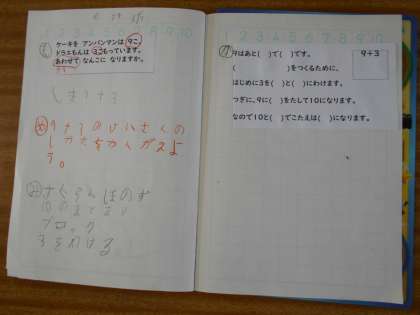 1 2 3 4 5 6 7 8 9 10
ケーキを アンパンマンは 9こ
ドラえもんは 3こもっています。
あわせて なんこに なりますか。
しき 9+3
め 9+3のけいさんの
しかたをかんがえよ
う。
さくらんぼのず
10のまとまり
ブロック
3をわける
1 2 3 4 5 6 7 8 9 10
9はあと( )で( )です。
( )をつくるために、
はじめに3を( )と( )にわけます。
つぎに、9に( )をたして10になります。
なので10と( )でこたえは( )になります。
9+3